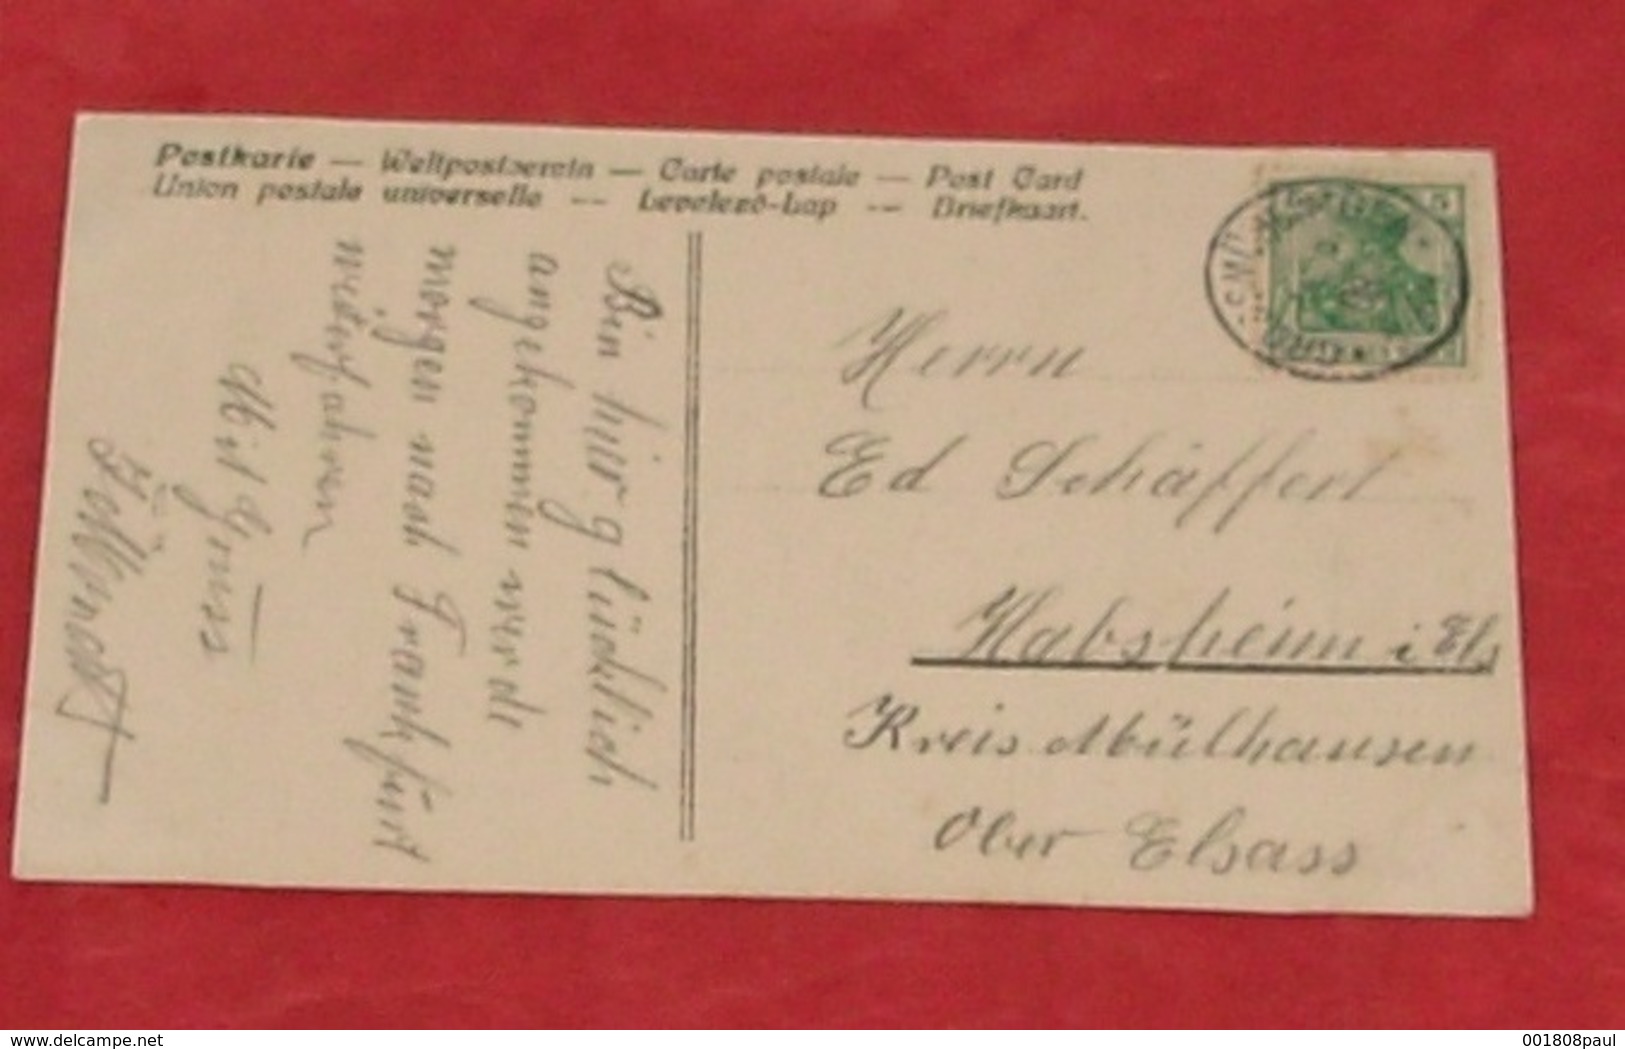 Postkarte — Weltpostverein — Carte postale — Post Card
Union postale universelle -- Levelező-Lap -- Briefkaart.
Bin hier glücklich
angekommen werde
morgen nach Frankfurt
weiterfahren
Mit Gruss
Herrn
Ed Schäffert
Habsheim i Els
Kreis Mülhausen
Ober Elsass
5
www.delcampe.net
001808paul